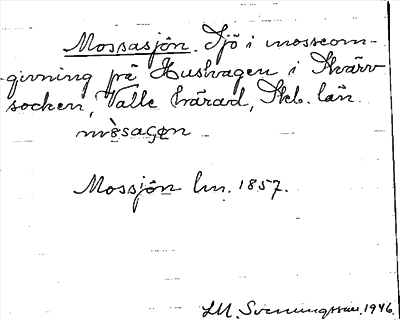 Mossasjön. Sjö i mosseom-
givning på Hushagen i Skärv
socken, Valle härad, Skb. län.
Mossjön lm. 1857.
LM. Svenungsson. 1946.